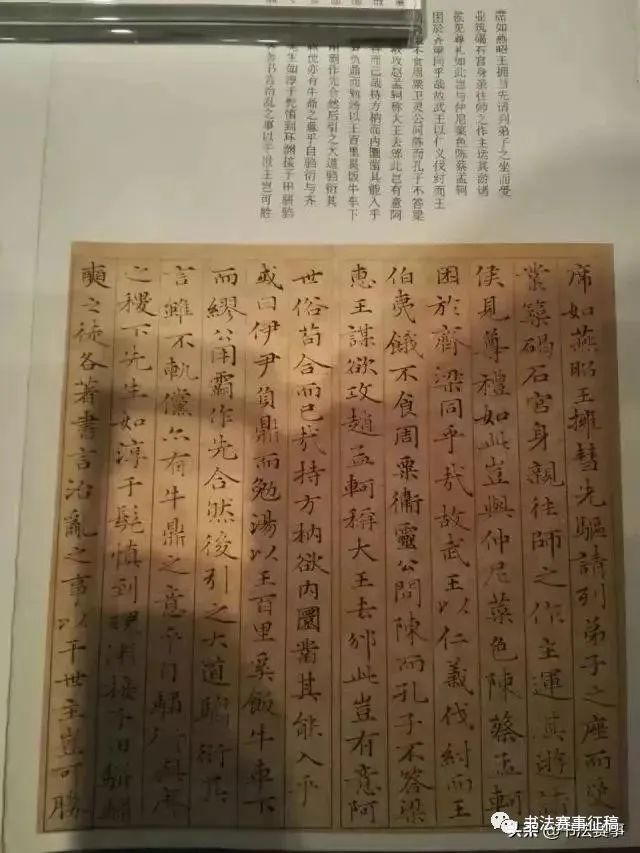 席如燕昭王拥当先请列弟子之坐而受
业筑碣石宫身亲往师之作主运其游诸
侯见尊礼如此岂与仲尼菜色陈蔡孟轲
困於齐梁同乎哉故武王以仁义伐纣而王
不食周粟卫灵公问陈而孔子不答梁
攻赵孟轲称大王去邠此岂有意阿
而已哉持方枘而内圜凿其能入乎
负鼎而勉汤以王百里奚饭牛车下
霸作先合然后引之大道驺衍其
傥亦有牛鼎之意乎自驺衍与齐
先生如淳于髡慎到环渊接子田骈驺
书言治乱之事以干世主岂可胜
席如燕昭王擁彗先驅請列弟子之座而受
業築碣石宮身親往師之作主運其游諸
侯見尊禮如此豈與仲尼菜色陳蔡孟軻
困於齊梁同乎哉故武王以仁義伐紂而王
伯夷餓不食周粟衞靈公問陳而孔子不答梁
惠王謀欲攻趙孟軻稱大王去邠此豈有意阿
世俗苟合而已哉持方枘欲内圜鑿其能入乎
或曰伊尹負鼎而勉湯以王百里奚飯牛車下
而繆公用霸作先合然後引之大道騶衍其
言雖不軌儻亦有牛鼎之意乎自騶衍與齊
之稷下先生如淳于髡慎到環淵接子田駢騶
奭之徒各著書言治亂之事以干世主豈可勝
书法赛事征稿
头条 @书法赛事